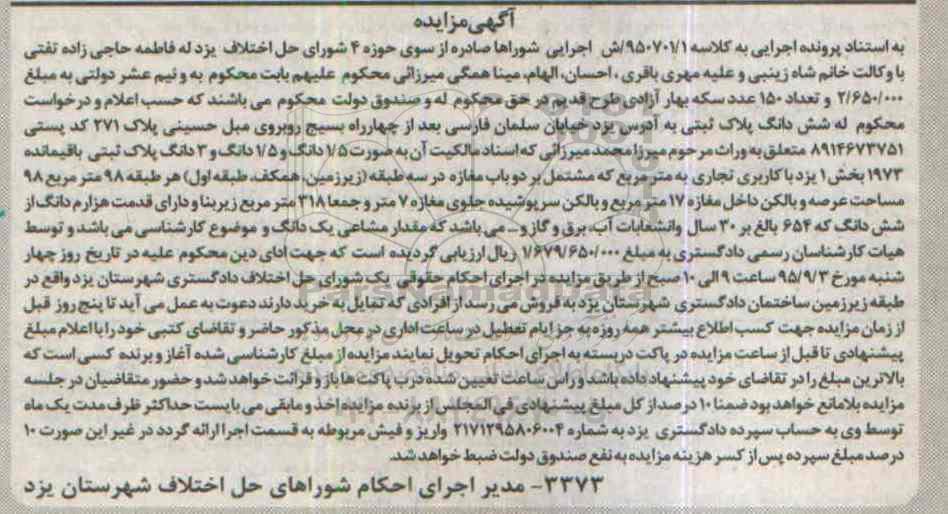 آگهی مزایده
به استناد پرونده اجرایی به کلاسه ۹۵۰۷۰۱/۱/ش اجرایی شوراها صادره از سوی حوزه ۴ شورای حل اختلاف یزد له فاطمه حاجی زاده تفتی
با وکالت خانم شاه زینبی و علیه مهری باقری ، احسان، الهام، مینا همگی میرزائی محکوم علیهم بابت محکوم به و نیم عشر دولتی به مبلغ
۲/۶۵۰/۰۰۰ و تعداد ۱۵۰ عدد سکه بهار آزادی طرح قدیم در حق محکوم له و صندوق دولت محکوم می باشند که حسب اعلام و درخواست
محکوم له شش دانگ پلاک ثبتی به آدرس یزد خیابان سلمان فارسی بعد از چهارراه بسیج روبروی مبل حسینی پلاک ۲۷۱ کد پستی
۸۹۱۴۶۷۳۷۵۱ متعلق به وراث مرحوم میرزا محمد میرزائی که اسناد مالکیت آن به صورت ۱/۵ دانگ و ۱/۵ دانگ و ۳ دانگ پلاک ثبتی باقیمانده
۱۹۷۳ بخش ۱ یزد با کاربری تجاری به متر مربع که مشتمل بر دو باب مغازه در سه طبقه (زیرزمین، همکف، طبقه اول) هر طبقه ۹۸ متر مربع ۹۸
مساحت عرصه و بالکن داخل مغازه ۱۷ متر مربع و بالکن سرپوشیده جلوی مغازه ۷ متر و جمعا ۳۱۸ متر مربع زیربنا و دارای قدمت هزارم دانگ از
شش دانگ که ۶۵۴ بالغ بر ۳۰ سال وانشعابات آب، برق و گاز و... می باشد که مقدار مشاعی یک دانگ و موضوع کارشناسی می باشد و توسط
هیات کارشناسان رسمی دادگستری به مبلغ ۱/۶۷۹/۶۵۰/۰۰۰ ریال ارزیابی گردیده است که جهت ادای دین محکوم علیه در تاریخ روز چهار
شنبه مورخ ۹۵/۹/۳ ساعت ۹ الی ۱۰ صبح از طریق مزایده در اجرای احکام حقوقی یک شورای حل اختلاف دادگستری شهرستان یزد واقع در
طبقه زیرزمین ساختمان دادگستری شهرستان یزد به فروش می رسد از افرادی که تمایل به خرید دارند دعوت به عمل می آید تا پنج روز قبل
از زمان مزایده جهت کسب اطلاع بیشتر همه روزه به جز ایام تعطیل در ساعت اداری در محل مذکور حاضر و تقاضای کتبی خود را با اعلام مبلغ
پیشنهادی تا قبل از ساعت مزایده در پاکت دربسته به اجرای احکام تحویل نمایند مزایده از مبلغ کارشناسی شده آغاز و برنده کسی است که
بالاترین مبلغ را در تقاضای خود پیشنهاد داده باشد و راس ساعت تعیین شده درب پاکت ها باز و قرائت خواهد شد و حضور متقاضیان در جلسه
مزایده بلامانع خواهد بود ضمنا ۱۰ درصد از کل مبلغ پیشنهادی فی المجلس از برنده مزایده اخذ و مابقی می بایست حداکثر ظرف مدت یک ماه
توسط وی به حساب سپرده دادگستری یزد به شماره ۲۱۷۱۲۹۵۸۰۶۰۰۴ واریز و فیش مربوطه به قسمت اجرا ارائه گردد در غیر این صورت ۱۰
درصد مبلغ سپرده پس از کسر هزینه مزایده به نفع صندوق دولت ضبط خواهد شد.
۳۳۷۳- مدیر اجرای احکام شوراهای حل اختلاف شهرستان یزد